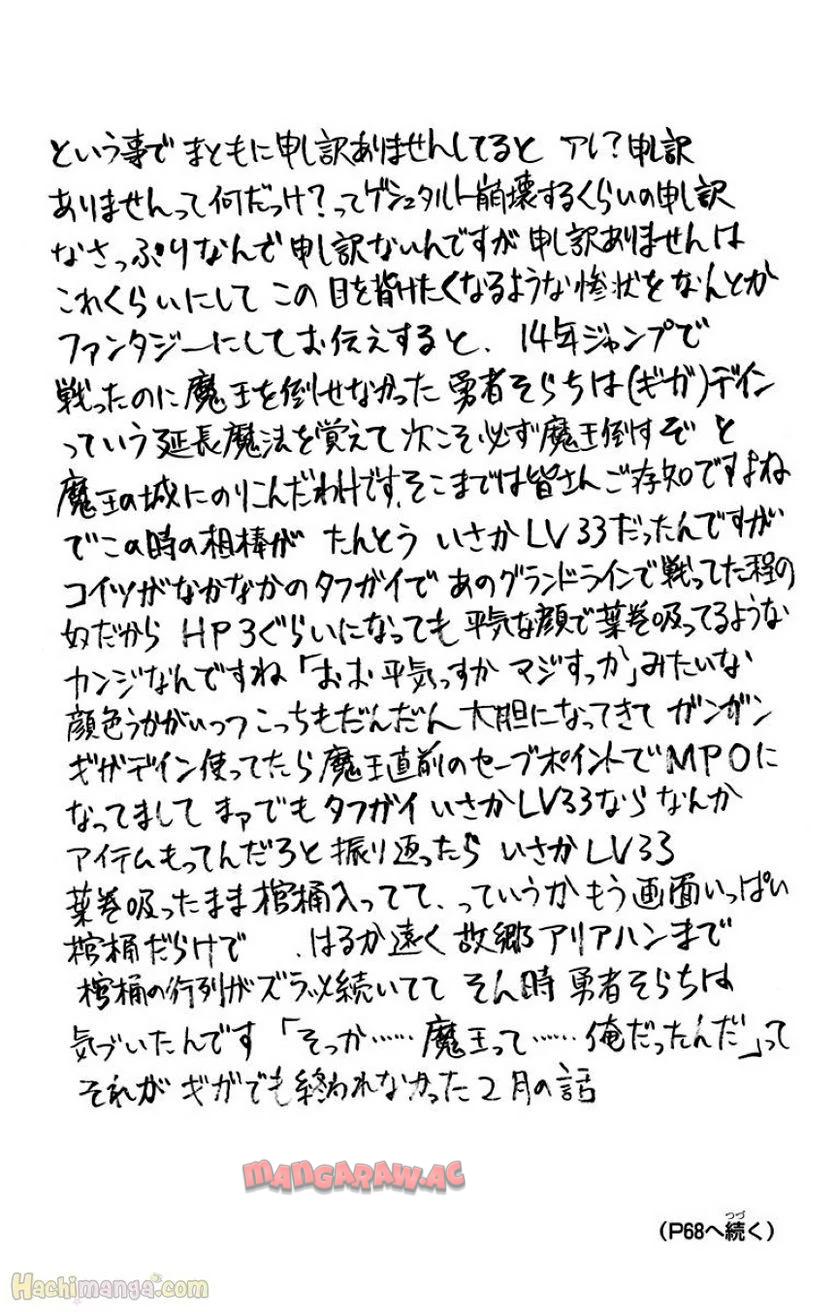 という事で まともに申し訳ありませんしてると アレ？申し訳
ありませんって何だっけ？ってゲシュタルト崩壊するくらいの申し訳
なさっぷりなんで 申し訳ないんですが 申し訳ありませんは
これくらいにして この目を背けたくなるような惨状をなんとか
ファンタジーにしてお伝えすると、14年ジャンプで
戦ったのに魔王を倒せなかった 勇者そらちは(ギガ)デイン
っていう延長魔法を覚えて 次こそ必ず魔王倒すぞ と
魔王の城にのりこんだわけです、そこまでは皆さんご存知ですよね
でこの時の相棒が たんとう いさか LV33だったんですが
コイツがなかなかのタフガイで あのグランドラインで戦ってた程の
奴だから HP3ぐらいになっても 平気な顔で葉巻吸ってるような
カンジなんですね「おお 平気っすか マジすっか」みたいな
顔色うかがいつつ こっちもだんだん大胆になってきて ガンガン
ギガデイン使ってたら魔王直前のセーブポイントでMP0に
なってまして まァでも タフガイ いさか LV33なら なんか
アイテムもってんだろと 振り返ったら いさか LV33
葉巻吸ったまま棺桶入ってて、っていうか もう画面いっぱい
棺桶だらけで 、はるか遠く 故郷アリアハンまで
棺桶の行列がズラッと続いてて そん時 勇者そらちは
気づいたんです 「そっか……魔王って……俺だったんだ」って
それが ギガでも終われなかった2月の話
MANGARAW.AC
(P68へ続く)
つづ
Hachimanga.com